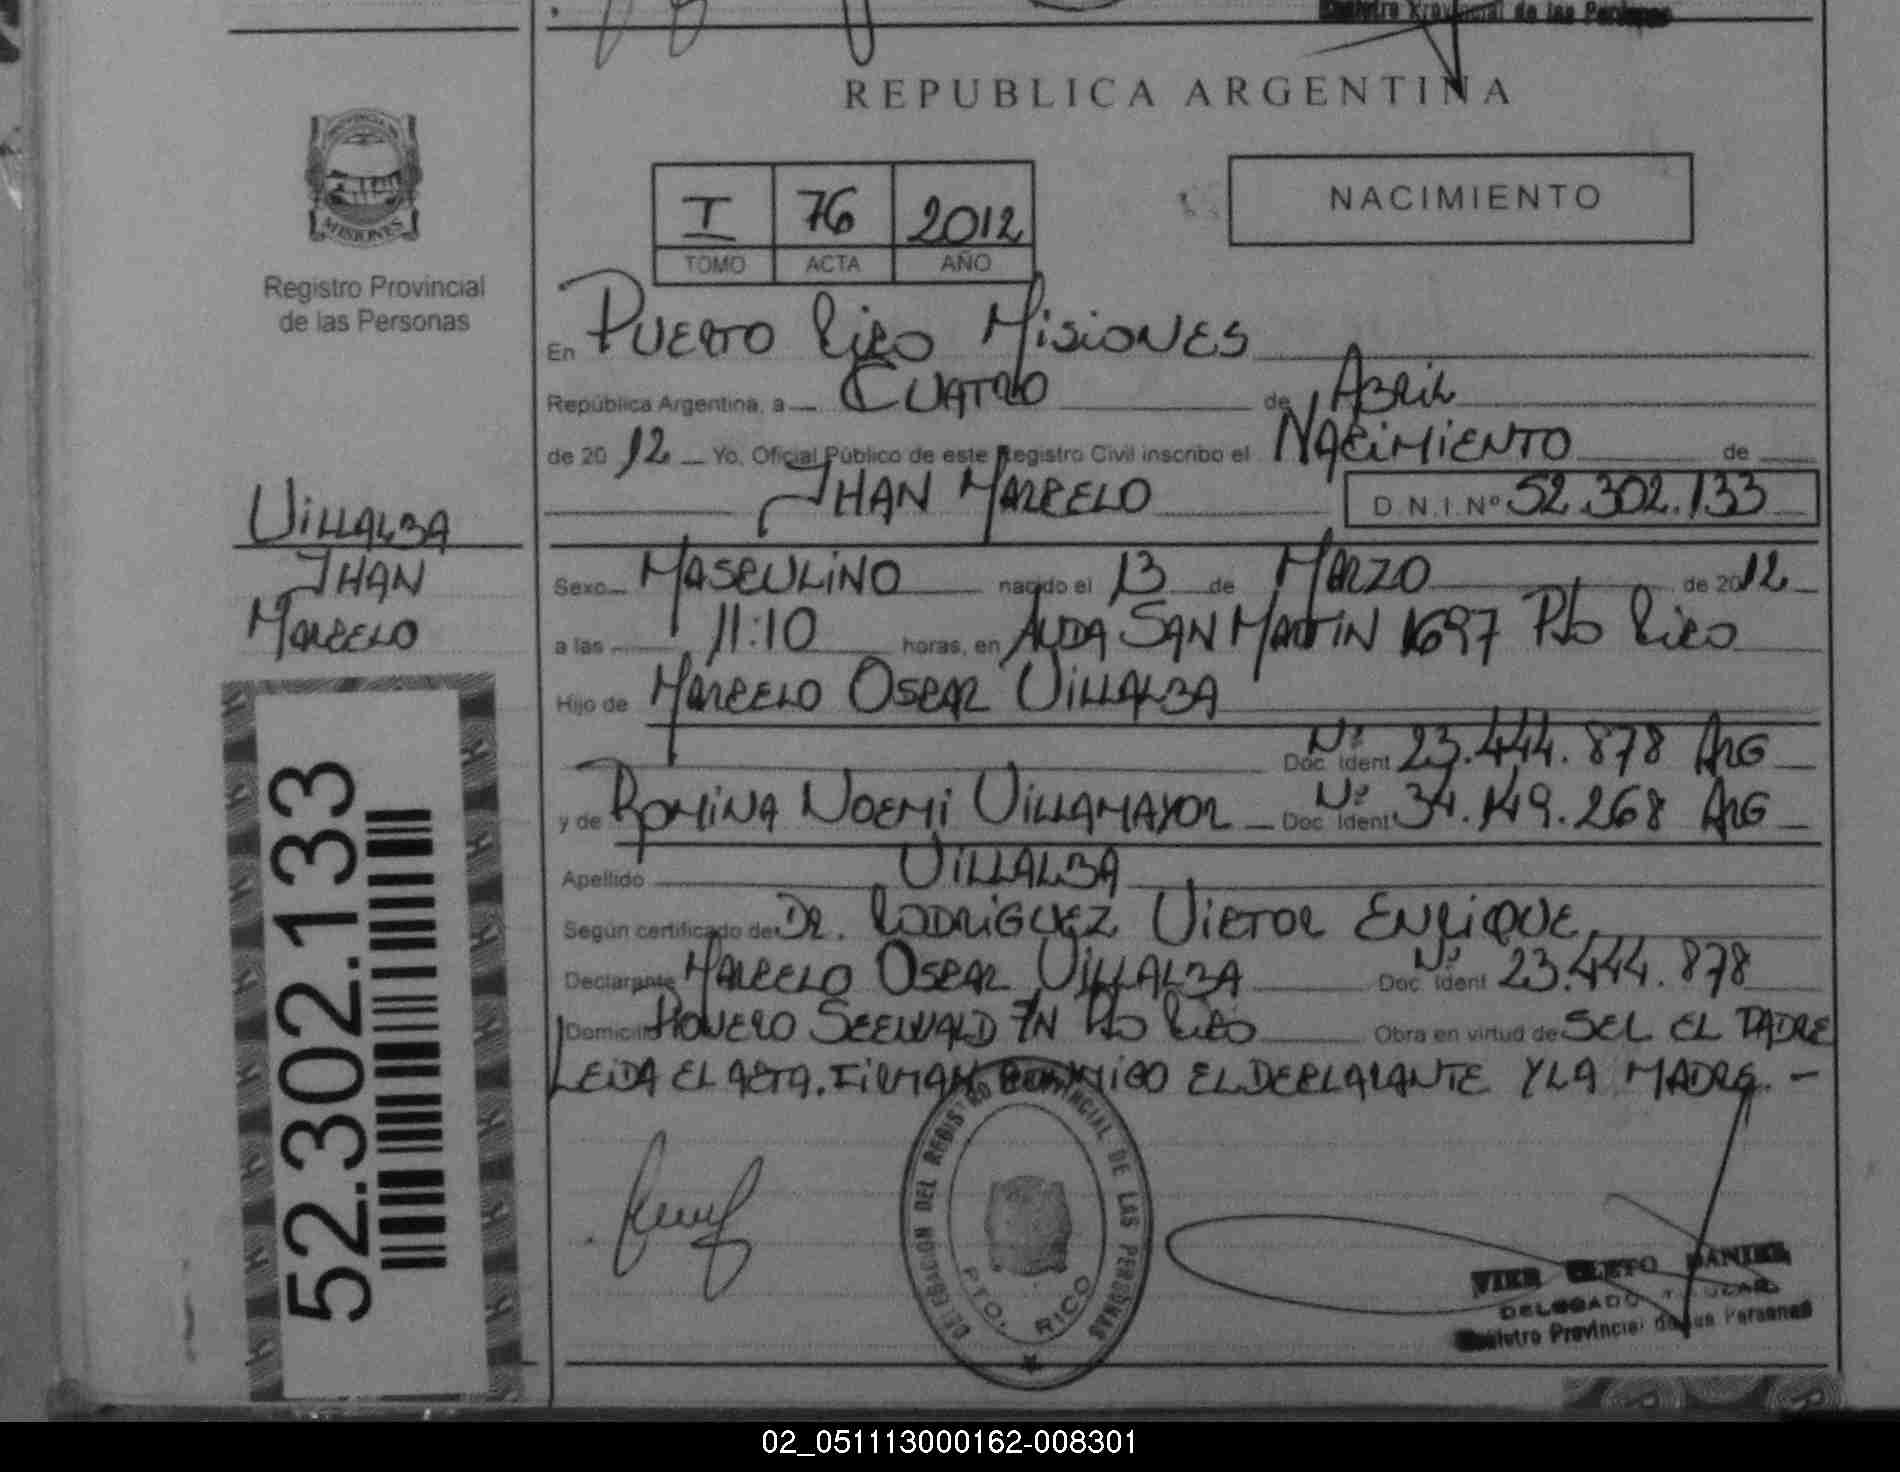 Registro Provincial de las Personas
REPUBLICA ARGENTINA
PROVINCIA DE
MISIONES
Registro Provincial
de las Personas
I 76 2012
TOMO ACTA AÑO
NACIMIENTO
En PUERTO RICO MISIONES
República Argentina, a CUATRO de ABRIL
de 2012 Yo, Oficial Público de este Registro Civil inscribo el NACIMIENTO de
JHAN MARCELO D.N.I. Nº 52.302.133
VILLALBA
JHAN
MARCELO
Sexo MASCULINO nacido el 13 de MARZO de 2012
a las 11:10 horas, en AVDA SAN MARTIN 1697 Pto RICO
Hijo de MARCELO OSCAR VILLALBA
Doc. Ident Nº 23.444.878 ARG
y de ROMINA NOEMI VILLAMAYOR Doc. Ident Nº 34.149.268 ARG
Apellido VILLALBA
Según certificado de DR. RODRIGUEZ VICTOR ENRIQUE.
Declarante MARCELO OSCAR VILLALBA Doc. Ident Nº 23.444.878
Domicilio SEEWALD Pto RICO Obra en virtud de SEL EL PADRE
LEIDA EL ACTA. FIRMAN CONMIGO EL DECLARANTE Y LA MADRE. -
52.302.133
DELEGACION DEL REGISTRO PROVINCIAL DE LAS PERSONAS
PTO. RICO
VIER CLETO DANIEL
DELEGADO TITULAR
Registro Provincial de las Personas
02_051113000162-008301